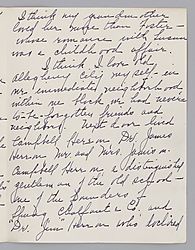 I think my grandmother
loved her more than Foster
whose romance with Susan
was a childhood affair.
I think I love old
Allegheny City myself - in
our immediate neighborhood
within one block we had never-
to-be-forgotten friends and
neighbors. Next door lived
Campbell Herron, Dr. James
Herron, Mr and Mrs. James M.
Campbell Herron, a distinguished
gentleman of the old school -
one of the founders of
Chalfant &
Dr. Jim Herron who looked